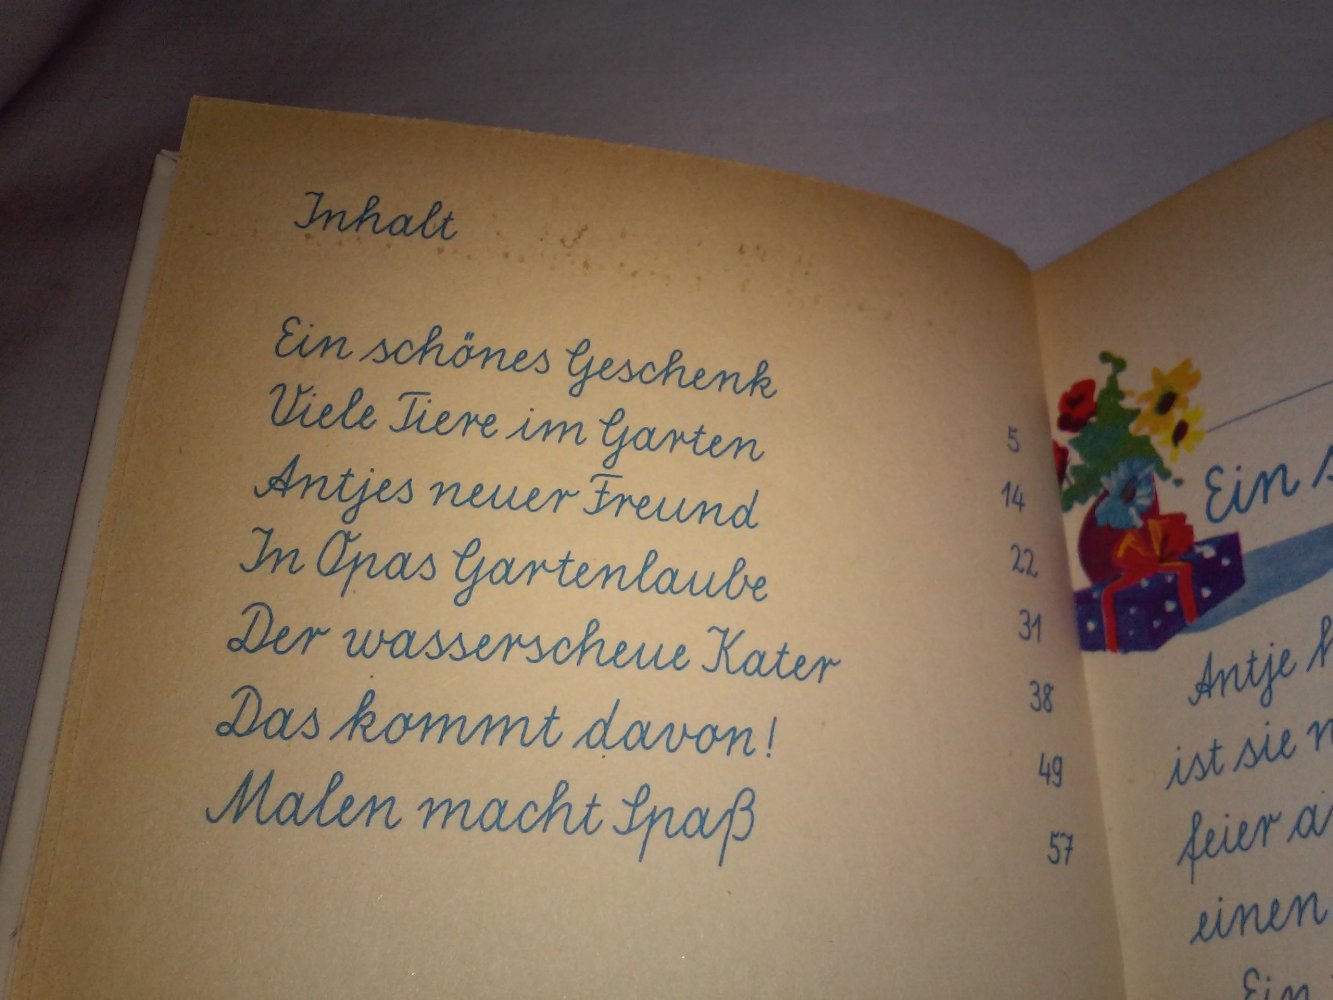 Inhalt
Ein schönes Geschenk 5
Viele Tiere im Garten 14
Antjes neuer Freund 22
In Opas Gartenlaube 31
Der wasserscheue Kater 38
Das kommt davon! 49
Malen macht Spaß 57
Ein
Antje
ist sie
feier
einen
Ein